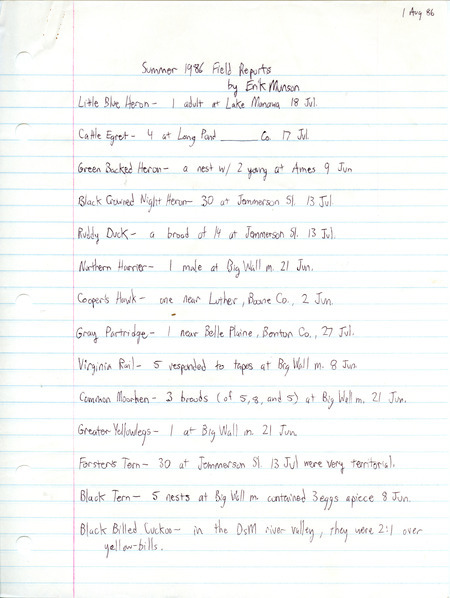 1 Aug 86
Summer 1986 Field Reports
by Erik Munson
Little Blue Heron - 1 adult at Lake Manawa 18 Jul.
Cattle Egret - 4 at Long Pond ______ Co. 17 Jul.
Green Backed Heron - a nest w/ 2 young at Ames 9 Jun
Black Crowned Night Heron - 30 at Jemmerson Sl. 13 Jul.
Ruddy Duck - a brood of 14 at Jemmerson Sl. 13 Jul.
Northern Harrier - 1 male at Big Wall m. 21 Jun.
Cooper's Hawk - one near Luther, Boone Co., 2 Jun.
Gray Partridge - 1 near Belle Plaine, Benton Co., 27 Jul.
Virginia Rail - 5 responded to tapes at Big Wall m. 8 Jun
Common Moorhen - 3 broods (of 5, 8, and 5) at Big Wall m. 21 Jun.
Greater Yellowlegs - 1 at Big Wall m. 21 Jun
Forster's Tern - 30 at Jemmerson Sl. 13 Jul were very territorial.
Black Tern - 5 nests at Big Wall m. contained 3 eggs apiece 8 Jun.
Black Billed Cuckoo - in the DsM river valley, they were 2:1 over
yellow-bills.